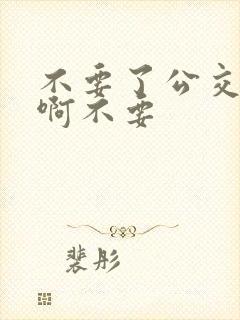 不要了公交
啊不要
裴彤